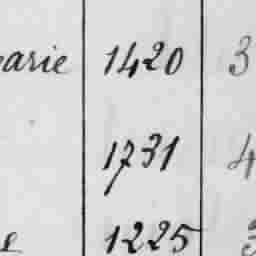 arie 1420 3
1731 4
e 1225 3